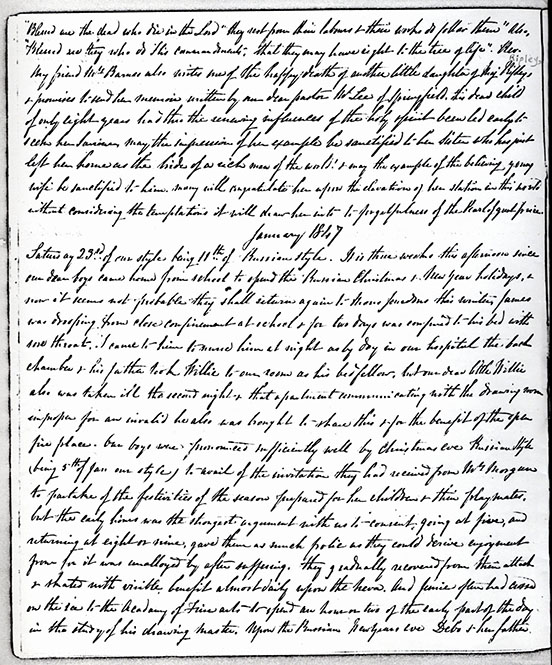 "Blessed are the dead who die in the Lord" "they rest from their labours & their works do follow them" Also,
"Blessed are they who do His commandments, that they may have right to the tree of life". Rev.
My friend Mrs Barnes also writes me of the happy death of another little daughter of Maj. Ripley,
Ripley
& promises to send her memoir written by our dear pastor Mr Lee of Springfield. This dear child
of only eight years had thro the renewing influences of the holy spirit been led early to
seek her Saviour, may the impression of her example be sanctified to her sister who has just
left her home as the bride of a rich man of the world! & may the example of the believing young
wife be sanctified to him. many will congratulate her upon the elevation of her station in this world
without considering the temptations it will draw her into to forgetfulness of the Pearl of great price.
January 1847
Saturday 23rd of our style being 11th of Russian style. It is three weeks this afternoon since
our dear boys came home from school to spend the Russian Christmas & New Year holidays, &
now it seems not probable they shall return again to Mons this winter, James
was drooping from close confinement at school & for two days was confined to his bed with
sore throat. I came to him to nurse him at night as by day in our hospital the back
chamber & his father took Willie to our room as his bedfellow, but our dear little Willie
also was taken ill the second night & that apartment communicating with the drawing room
improper for an invalid he also was brought to share this & for the benefit of the open
fire place. Our boys were pronounced sufficiently well by Christmas eve Russian Style
(being 5th of Jan our style) to avail of the invitation they had received from Mrs Morgan
to partake of the festivities of the season prepared for her children & their playmates.
but the early hours was the strongest argument with us to consent, going at five, and
returning at eight or nine, gave them as much frolic as they could derive enjoyment
from for it was unalloyed by after suffering. they gradually recovered from their attack
& skated with visible benefit almost daily upon the Neva. And Jemie often had crossed
on the ice to the Academy of Fine arts to spend an hour or two of the early part of the day
in the study of his drawing master. Upon the Russian New Years eve Debo & her father